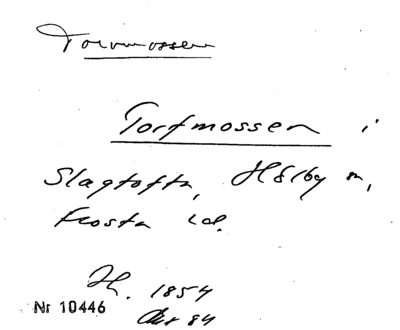 Torvmossen
Torfmossen i
Slagtofta, Hörby sn,
Frosta hd.
H. 1854
Nr 10446
84